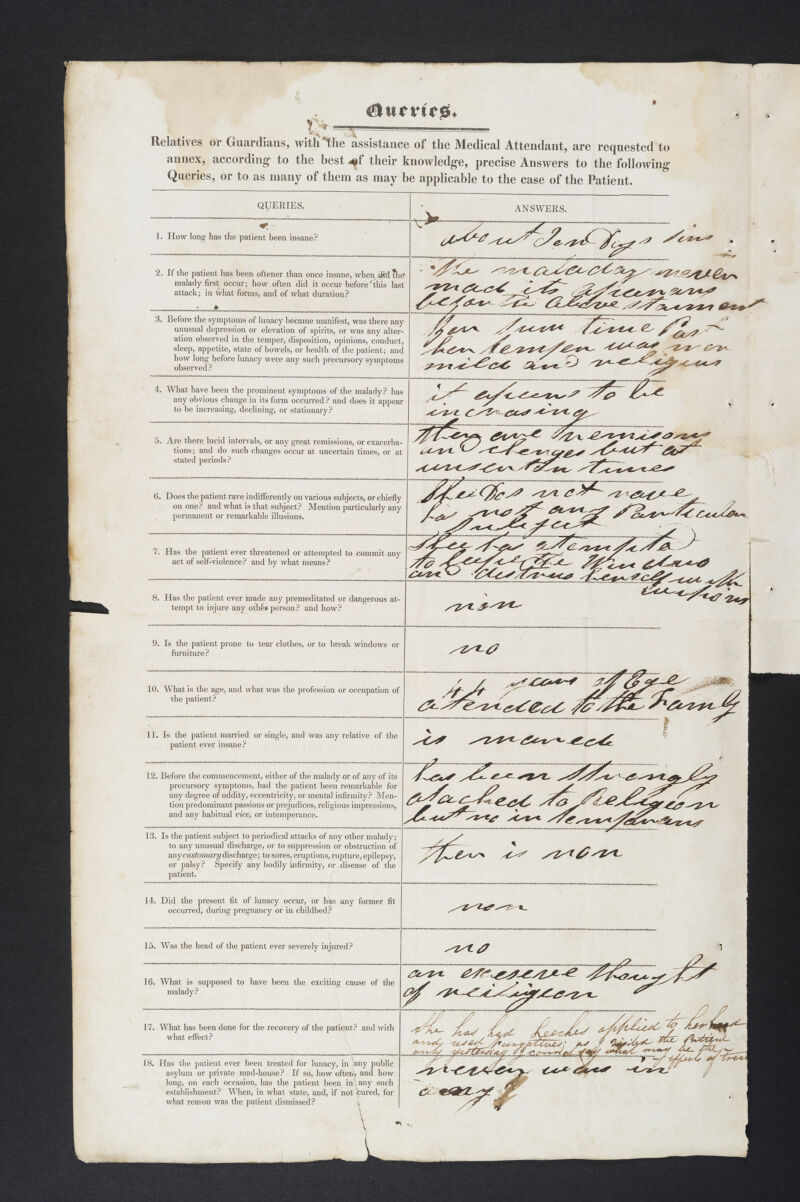 Queries.
Relatives or Guardians, with the assistance of the Medical Attendant, are requested to
annex, according to the best of their knowledge, precise Answers to the following
Queries, or to as many of them as may be applicable to the case of the Patient.
QUERIES.
ANSWERS.
1. How long has the patient been insane?
about Ten Days sins
2. If the patient has been oftener than once insane, when did the
malady first occur; how often did it occur before this last
attack; in what forms, and of what duration?
the maladay never
mad its apearans
before the above stament
3. Before the symptoms of lunacy became manifest, was there any
unusual depression or elevation of spirits, or was any alter-
ation observed in the temper, disposition, opinions, conduct,
sleep, appetite, state of bowels, or health of the patient; and
how long before lunacy were any such precursory symptoms
observed?
for sum time Past
her temper was mor
mild and religius
4. What have been the prominent symptoms of the malady? has
any obvious change in its form occurred? and does it appear
to be increasing, declining, or stationary?
it apeers to be
incrasing
5. Are there lucid intervals, or any great remissions, or exacerba-
tions; and do such changes occur at uncertain times, or at
stated periods?
ther are remisons
and chenges but at
unsertin times
6. Does the patient rave indifferently on various subjects, or chiefly
on one? and what is that subject? Mention particularly any
permanent or remarkable illusions.
Shee Dos not rave
has not any Particular
Subject
7. Has the patient ever threatened or attempted to commit any
act of self-violence? and by what means?
Shee has atempted
to the Windows
and distroy herself with
wepons
8. Has the patient ever made any premeditated or dangerous at-
tempt to injure any other person? and how?
non
9. Is the patient prone to tear clothes, or to break windows or
furniture?
no
10. What is the age, and what was the profession or occupation of
the patient?
44 years of Ege
atended to the Family
11. Is the patient married or single, and was any relative of the
patient ever insane?
is mared
12. Before the commencement, either of the malady or of any of its
precursory symptoms, had the patient been remarkable for
any degree of oddity, eccentricity, or mental infirmity? Men-
tion predominant passions or prejudices, religious impressions,
and any habitual vice, or intemperance.
has been strongly
atached to Religeon
but no intemparans
13. Is the patient subject to periodical attacks of any other malady;
to any unusual discharge, or to suppression or obstruction of
any customary discharge; to sores, eruptions, rupture, epilepsy,
or palsy? Specify any bodily infirmity, or disease of the
patient.
ther is non
14. Did the present fit of lunacy occur, or has any former fit
occurred, during pregnancy or in childbed?
non
15. Was the head of the patient ever severely injured?
no
16. What is supposed to have been the exciting cause of the
malady?
an exeseve thought
of reiligeon
17. What has been done for the recovery of the patient? and with
what effect?
She has had Leeches applied to her head
and used Purgatives; as I visited the Patient
only yesterday I cannot say what may be the
effect of
18. Has the patient ever been treated for lunacy, in any public
asylum or private mad-house? If so, how often, and how
long, on each occasion, has the patient been in any such
establishment? When, in what state, and, if not cured, for
what reason was the patient dismissed?
never was in
any